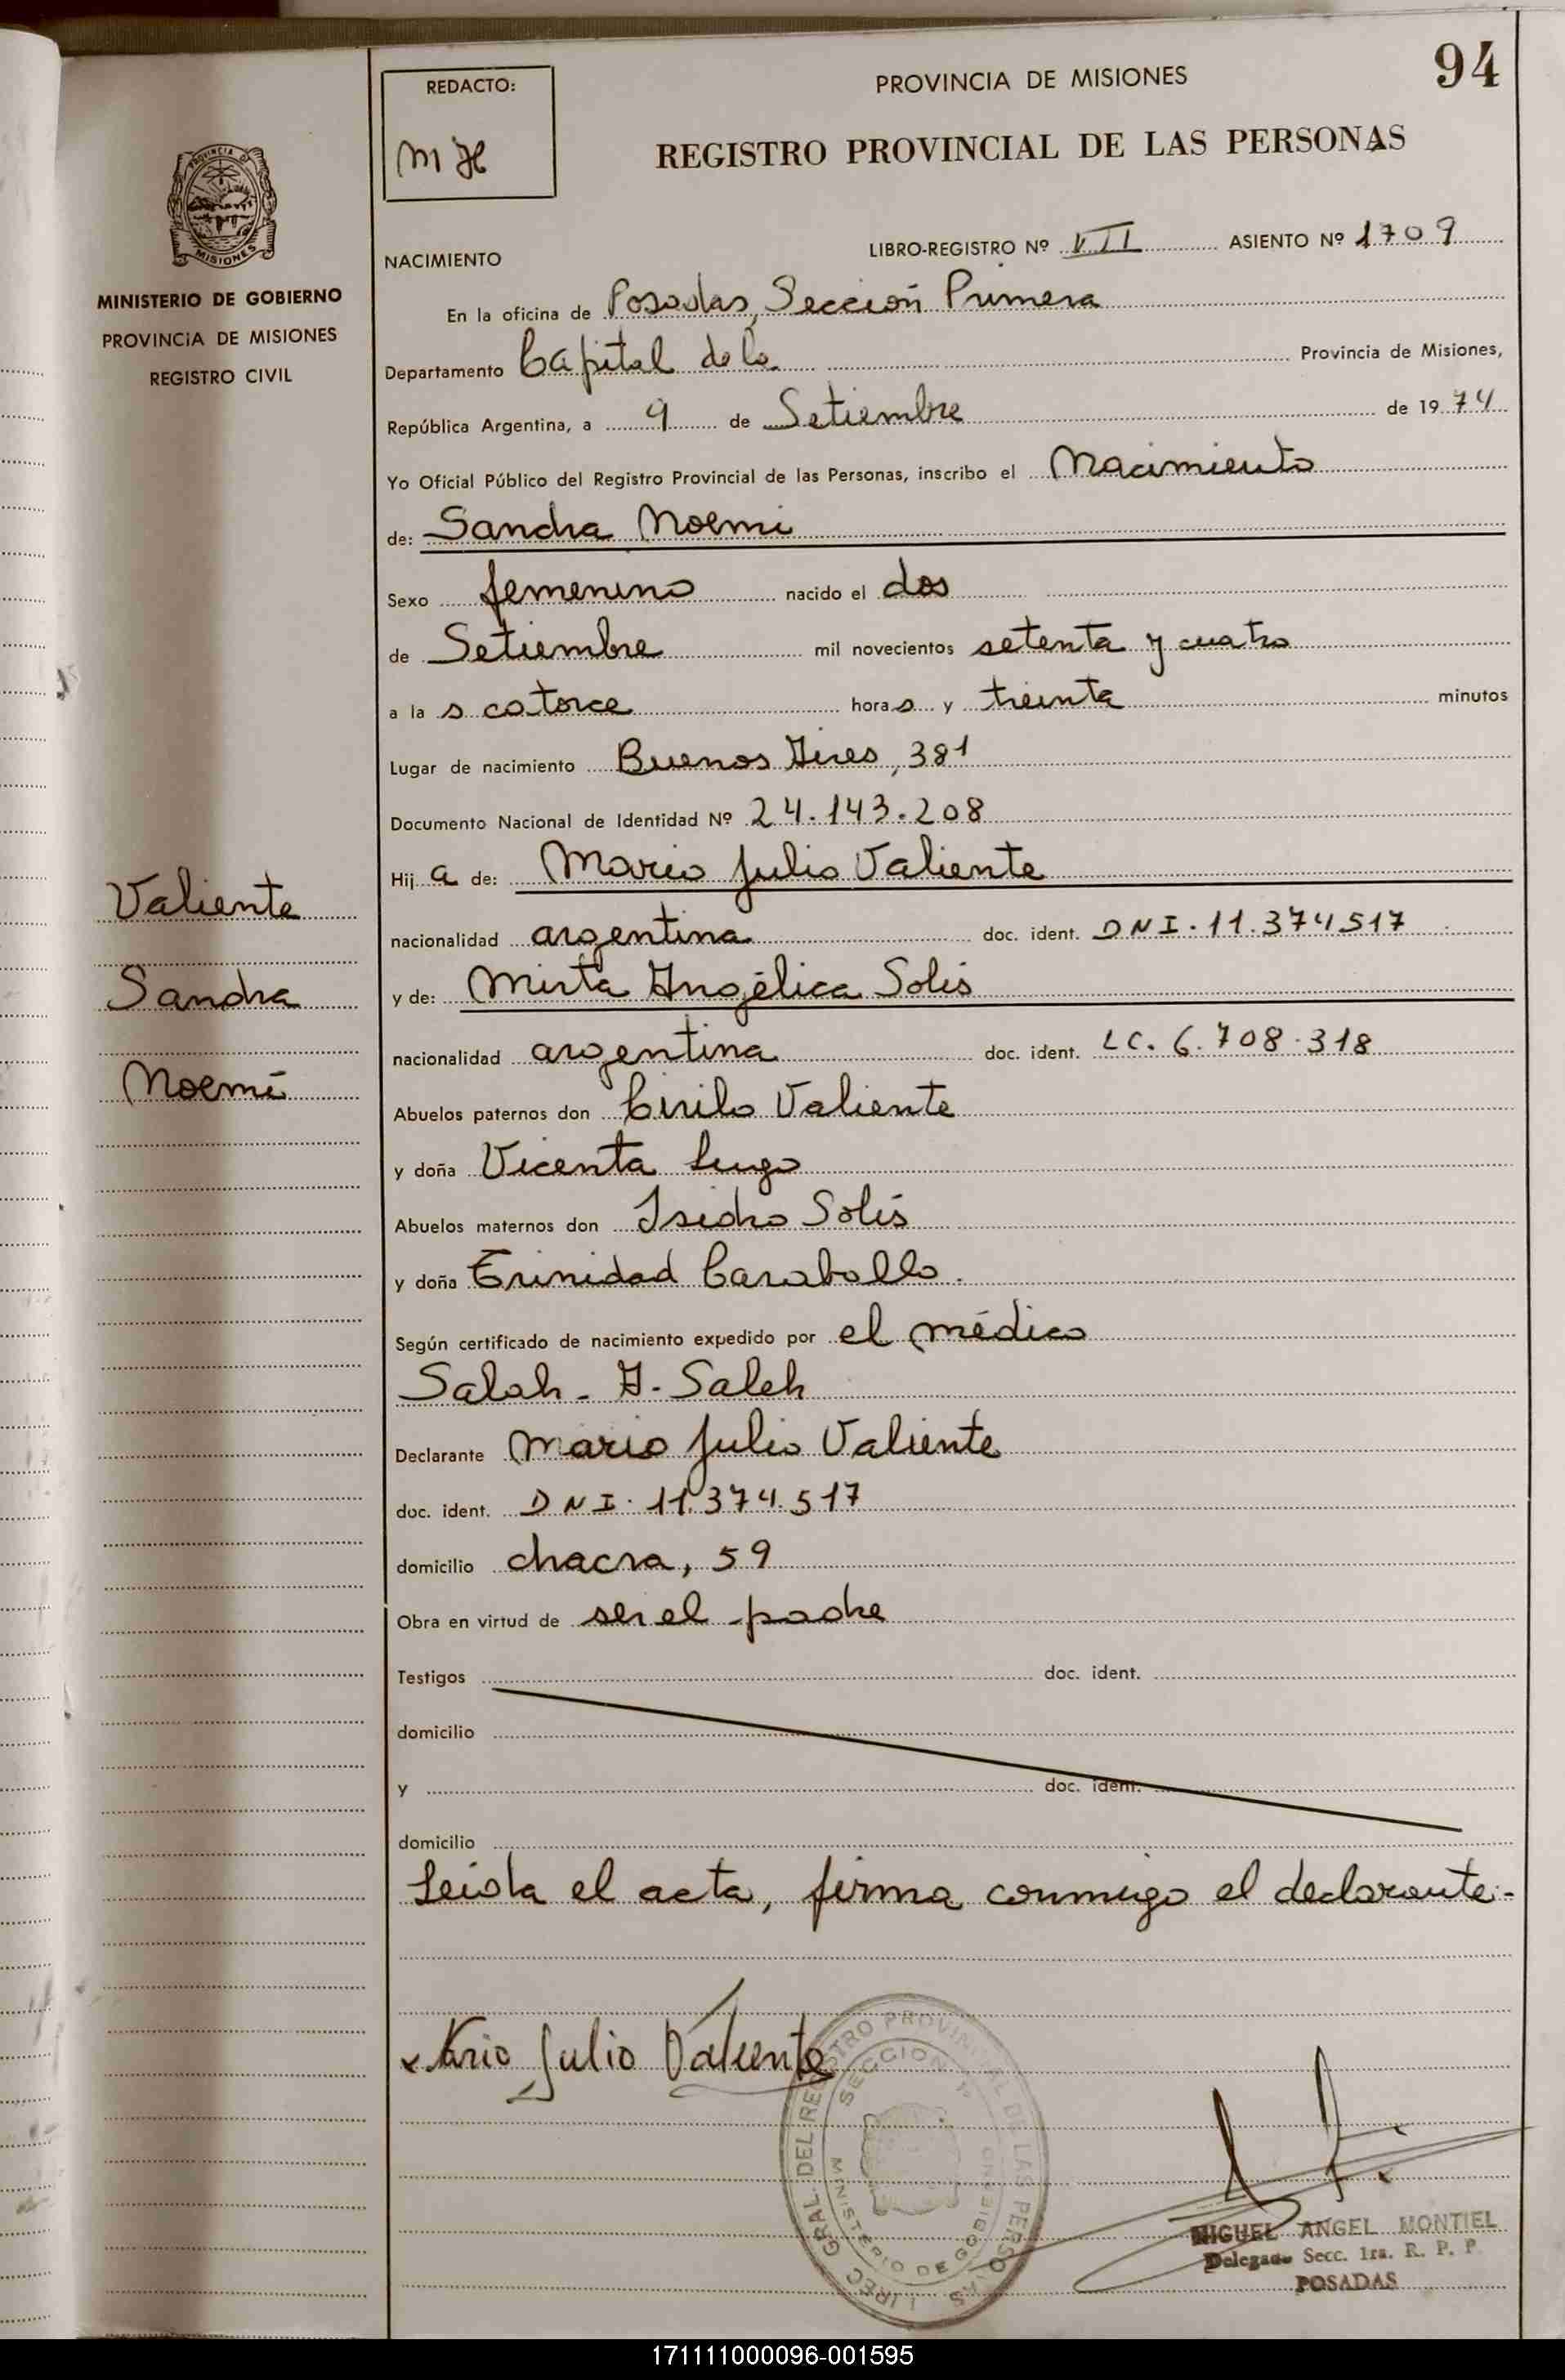 94
REDACTO:
PROVINCIA DE MISIONES
REGISTRO PROVINCIAL DE LAS PERSONAS
PROVINCIA DE
MISIONES
MINISTERIO DE GOBIERNO
PROVINCIA DE MISIONES
REGISTRO CIVIL
NACIMIENTO
LIBRO-REGISTRO Nº VII ASIENTO Nº 1709
En la oficina de Posadas, Sección Primera
Departamento Capital de la Provincia de Misiones,
República Argentina, a 9 de Setiembre de 1974
Yo Oficial Público del Registro Provincial de las Personas, inscribo el Nacimiento
de: Sandra Noemi
Sexo femenino nacido el dos
de Setiembre mil novecientos setenta y cuatro
a la s catorce horas y treinta minutos
Lugar de nacimiento Buenos Aires, 381
Documento Nacional de Identidad Nº 24.143.208
Hij a de: Mario Julio Valiente
nacionalidad argentina doc. ident. DNI. 11.374517
y de: Mirta Angélica Solis
nacionalidad argentina doc. ident. LC. 6.708.318
Abuelos paternos don Cirilo Valiente
y doña Vicenta Lugo
Abuelos maternos don Isidro Solís
y doña Trinidad Caraballo.
Según certificado de nacimiento expedido por el médico
Salah - A. Saleh
Declarante Mario Julio Valiente
doc. ident. DNI. 11.374.517
domicilio chacra, 59
Obra en virtud de ser el padre
Testigos doc. ident.
domicilio
y doc. ident.
domicilio
Leida el acta, firma conmigo el declarante.-
Valiente
Sandra
Noemí
Mario Julio Valiente
DIREC. GRAL. DEL REGISTRO PROVINCIAL DE LAS PERSONAS
SECCION 1ª
MINISTERIO DE GOBIERNO
MIGUEL ANGEL MONTIEL
Delegado Secc. 1ra. R. P. P.
POSADAS
171111000096-001595